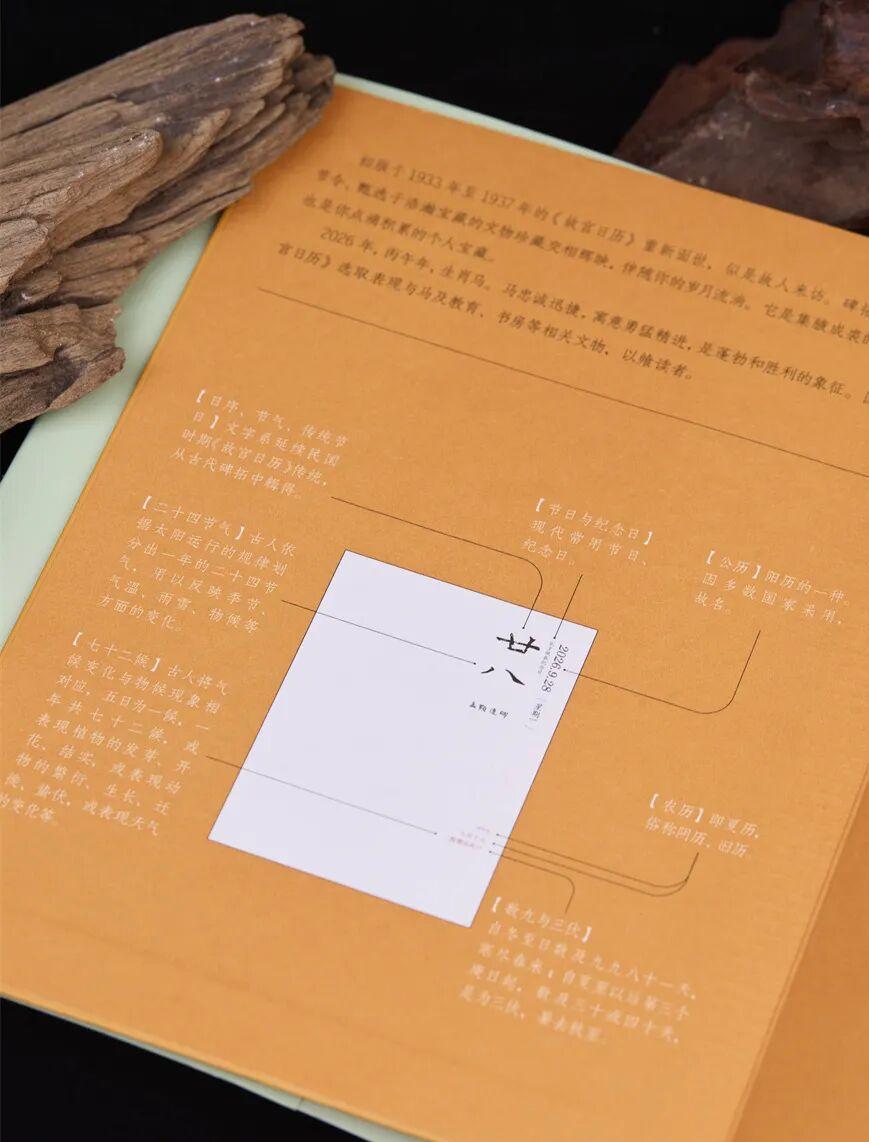 始族于1933年至1937年的《故宫日历》重新面世，似是故人来访。碑
节令，甄选于浩瀚宝藏的文物珍藏交相辉映，伴随你的岁月流淌。它是集腋成裘的
也是你点滴积累的个人宝藏。
2026年，丙午年，生肖马。马忠诚迅捷，寓意勇猛精进，是蓬勃和胜利的象征。
宫日历》选取表现与马及教育、书房等相关文物，以飨读者。
【日序、节气、传统节
日】文字系延续民国
时期《故宫日历》传统，
从古代碑拓中辑得。
【二十四节气】古人依
据太阳运行的规律划
分出一年的二十四节
气，用以反映季节、
气温、雨雪、物候等
方面的变化。
【七十二候】古人将气
候变化与物候现象相
对应，五日为一候，一
年共七十二候，或
表现植物的发芽、开
花、结实，或表现动
物的繁衍、生长、迁
徙、蛰伏，或表现天气
的变化等。
【节日与纪念日】
现代常用节日、
纪念日。
【公历】阳历的一种。
因多数国家采用，
故名。
廿八
2026.9.28
星期一
【农历】即夏历，
俗称阴历、旧历。
【数九与三伏】
自冬至日数及九九八十一天，
寒尽春来；自夏至以后第三个
庚日起，数及三十或四十天，
是为三伏，暑去秋至。